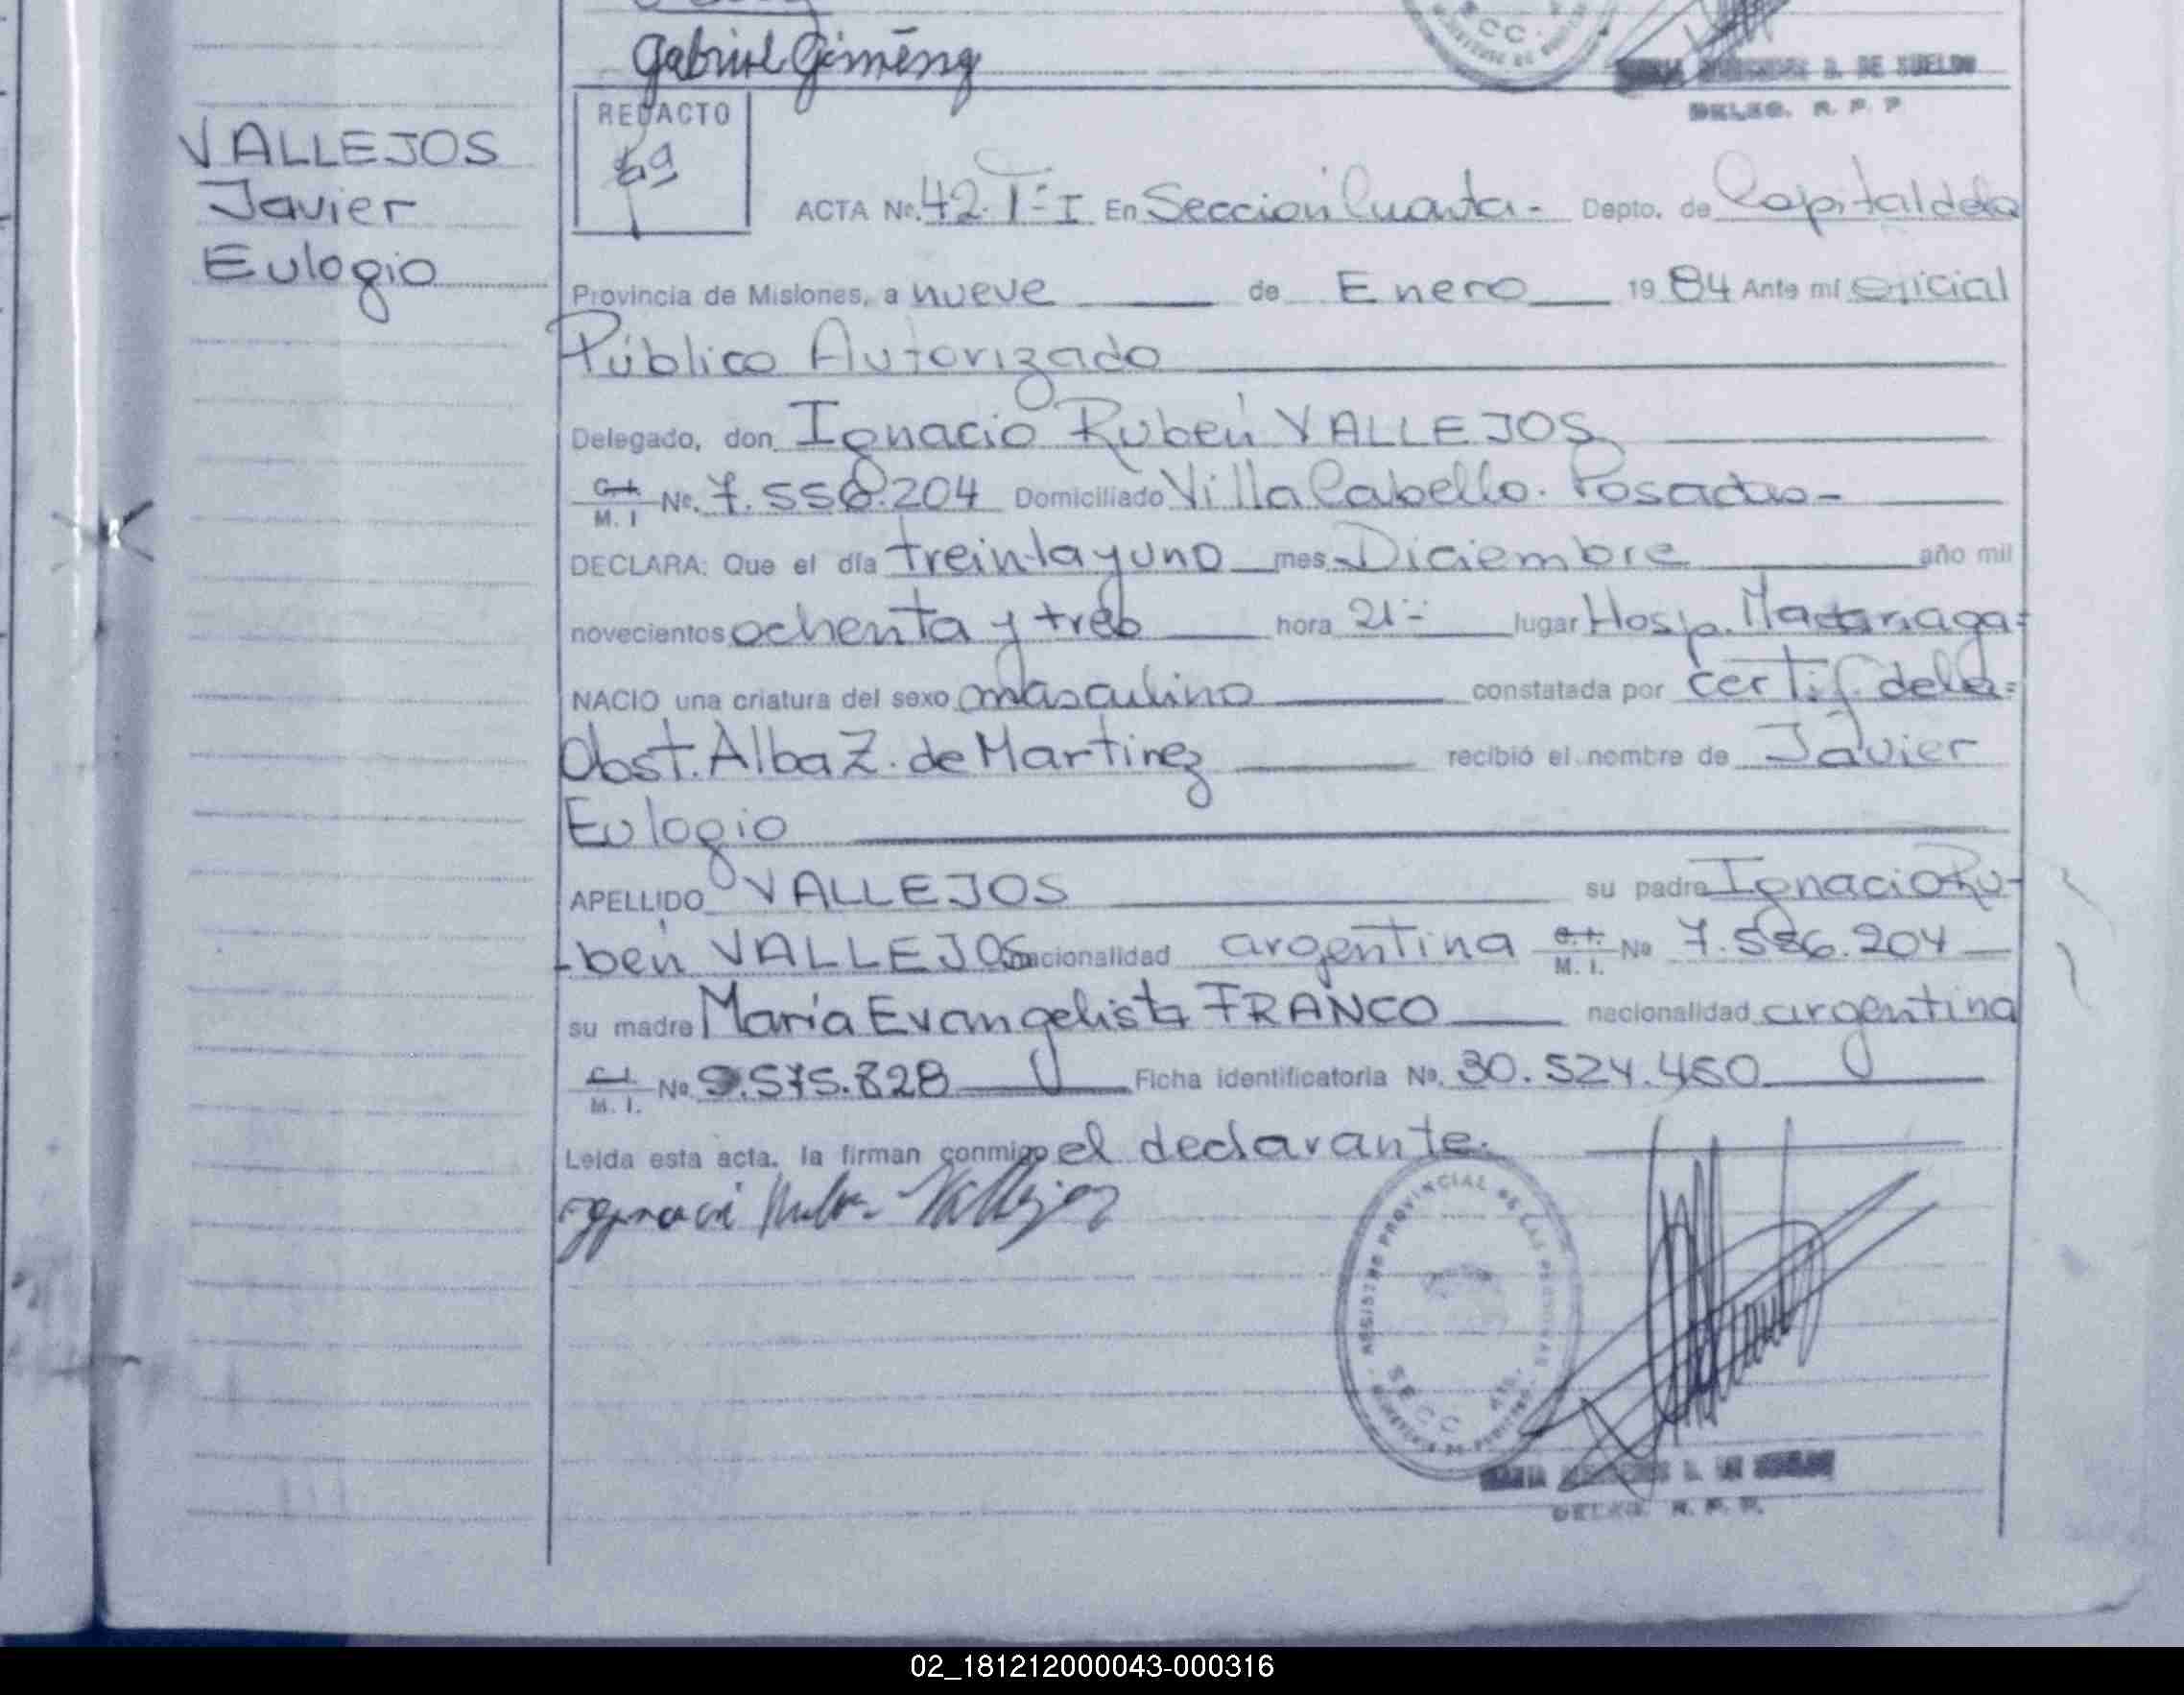 Gabriel Giménez
DELEG. R. P. P
VALLEJOS
Javier
Eulogio
REDACTO
ACTA No. 42 Tº I En Sección Cuarta - Depto. de Capital dela
Provincia de Misiones, a nueve de Enero 1984 Ante mí oficial
Público Autorizado
Delegado, don Ignacio Rubén VALLEJOS
C. I. M. I No. 7.558.204 Domiciliado Villa Cabello. Posadas -
DECLARA: Que el día treinta y uno mes Diciembre año mil
novecientos ochenta y tres hora 21 lugar Hosp. Madariaga
NACIO una criatura del sexo masculino constatada por certif. dela
Obst. Alba Z. de Martinez recibió el nombre de Javier
Eulogio
APELLIDO VALLEJOS su padre Ignacio Ru-
-bén VALLEJOS nacionalidad argentina C. I. M. I. No 7.586.204
su madre María Evangelista FRANCO nacionalidad argentina
C. I. M. I. No 9.575.828 Ficha identificatoria No. 30.524.450
Leída esta acta, la firman conmigo el declarante.
Ignacio Ruben Vallejos
REGISTRO PROVINCIAL DE LAS PERSONAS
SECC. 4ta.
DELEG. R. P. P.
02_181212000043-000316